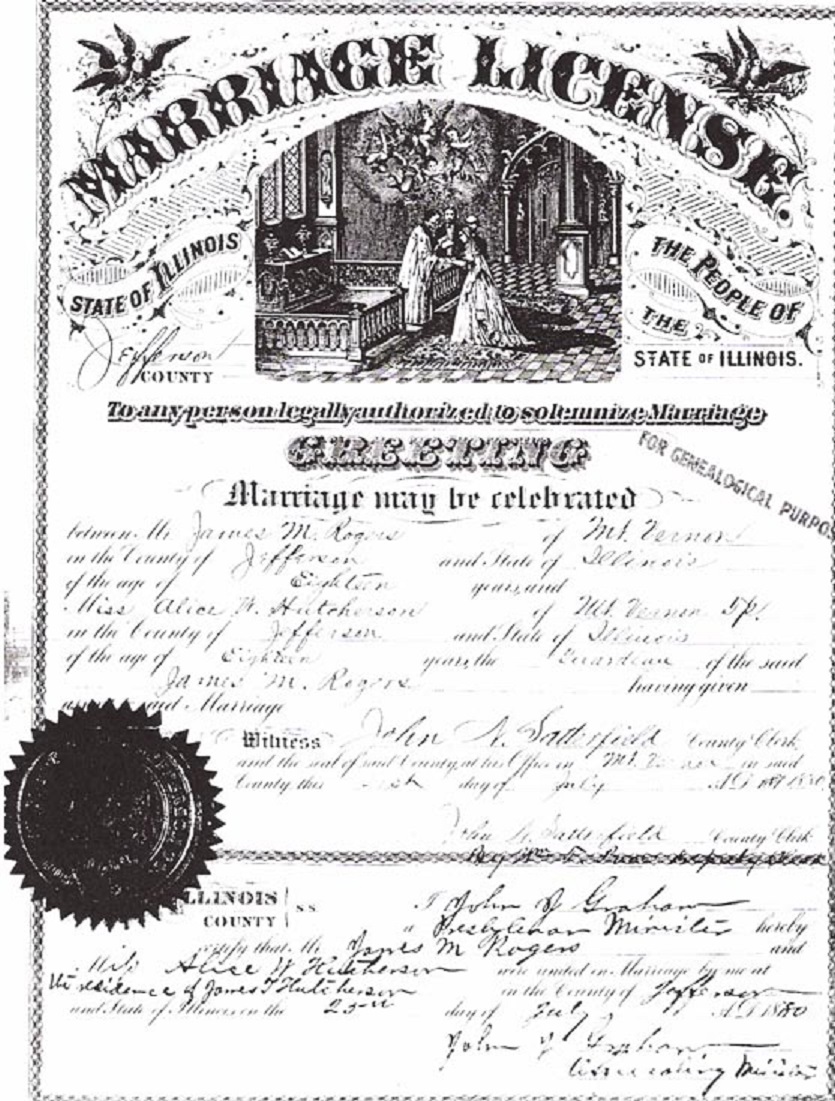 MARRIAGE LICENSE.
STATE OF ILLINOIS
THE PEOPLE OF
THE
STATE OF ILLINOIS.
Jefferson
COUNTY
To any person legally authorized to solemnize Marriage
GREETING
FOR GENEALOGICAL PURPO
Marriage may be celebrated
between Mr James M. Rogers of Mt. Vernon
in the County of Jefferson and State of Illinois
of the age of Eighteen years, and
Miss Alice W. Hutcherson of Mt. Vernon
in the County of Jefferson and State of Illinois
of the age of Eighteen years, the of the said
James M. Rogers having given
said Marriage
Witness John N. Satterfield County Clerk
and the seal of said County, at his Office in Mt. Vernon in said
County this day of July A.D. 1880
John N. Satterfield County Clerk
By Deputy
ILLINOIS
COUNTY
ss
I John J Graham
a Presbyterian Minister hereby
certify that Mr James M Rogers and
Miss Alice W Hutcherson were united in Marriage by me at
residence of James T Hutcherson in the County of Jefferson
and State of Illinois, on the 25th day of July A.D. 1880
John J Graham
Minister